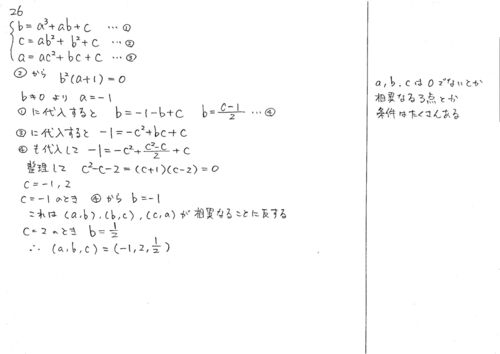 26
b=a³+ab+c …①
c=ab²+b²+c …②
a=ac²+bc+c …③
②から b²(a+1)=0
b≠0より a=-1
①に代入すると b=-1-b+c b=\frac{c-1}{2} …④
③に代入すると -1=-c²+bc+c
④も代入して -1=-c²+\frac{c²-c}{2}+c
整理して c²-c-2=(c+1)(c-2)=0
c=-1,2
c=-1のとき ④から b=-1
これは (a,b),(b,c),(c,a)が相異なることに反する
c=2のとき b=\frac{1}{2}
∴ (a,b,c)=(-1,2,\frac{1}{2})
a,b,cは0でないとか
相異なる3点とか
条件はたくさんある